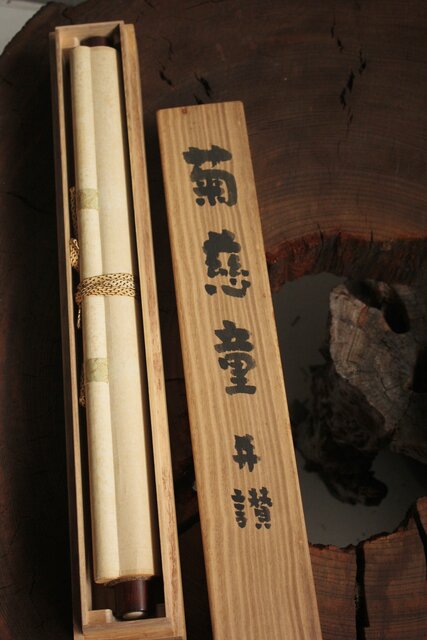 菊慈童
并讃